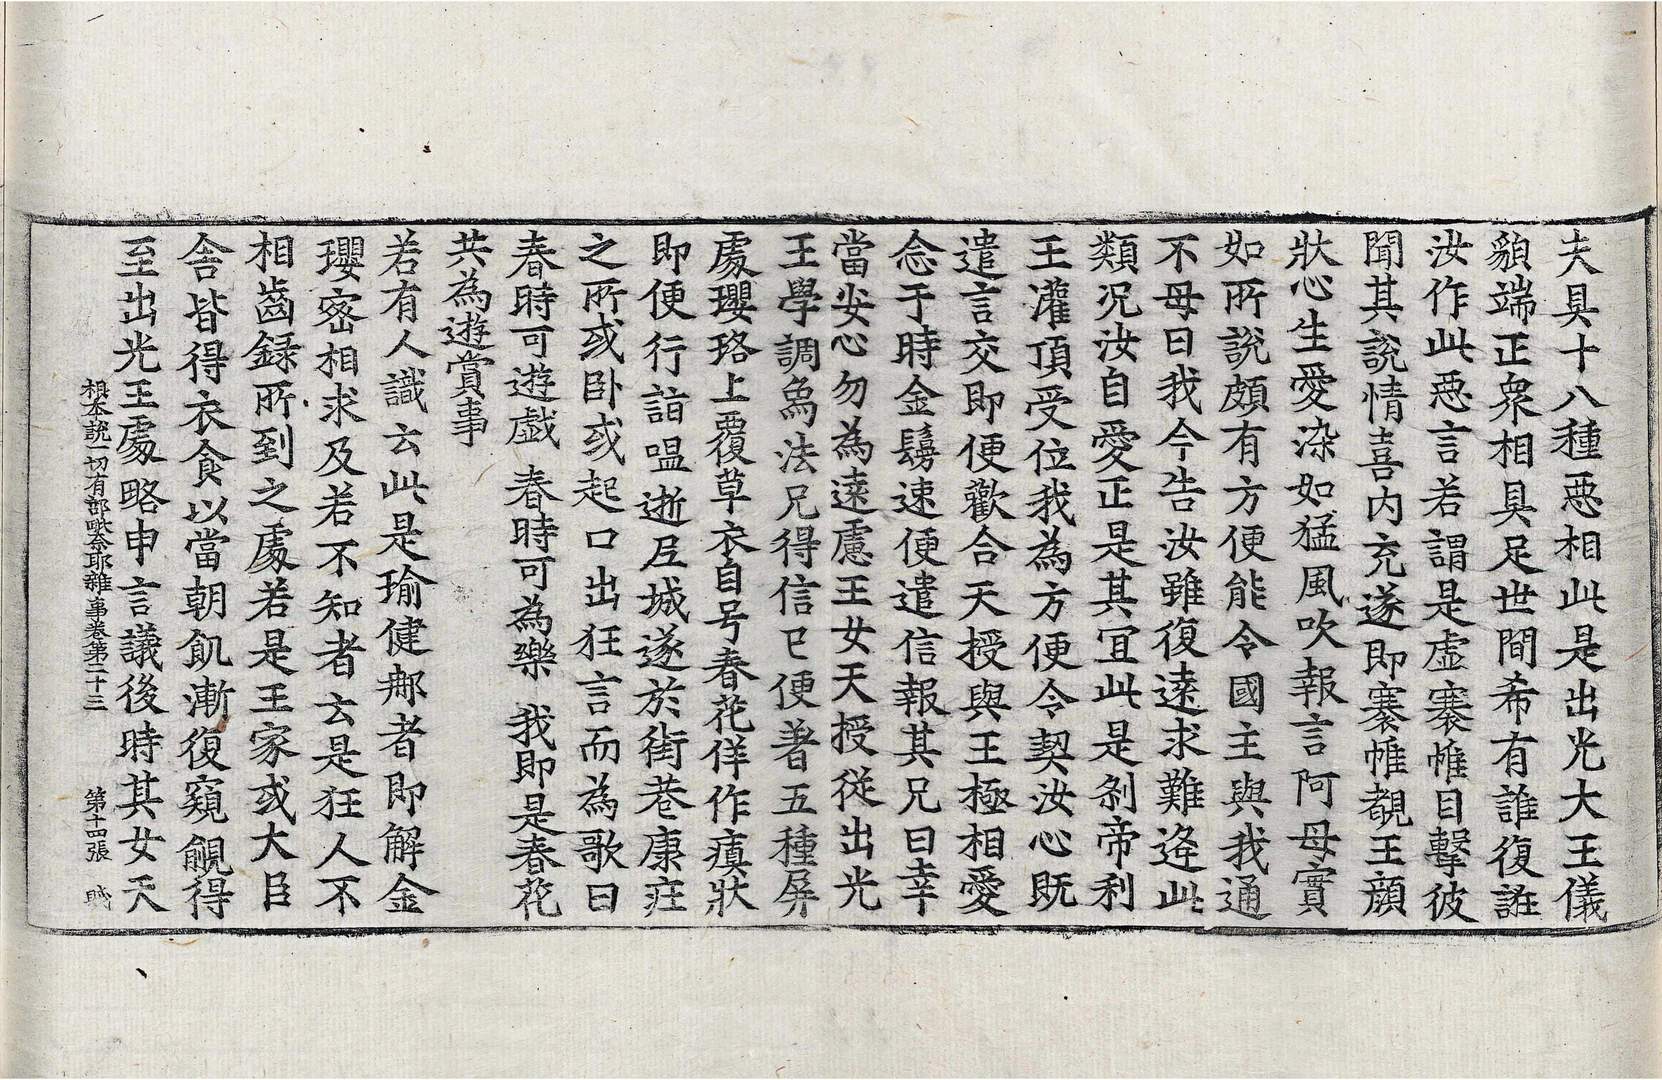 夫具十八種惡相此是出光大王儀
貌端正衆相具足世間希有誰復誑
汝作此惡言若謂是虛褰帷目擊彼
聞其說情喜內充遂即褰帷覩王顔
狀心生愛染如猛風吹報言阿母實
如所說頗有方便能令國主與我通
不母曰我今告汝雖復遠求難逢此
類況汝自愛正是其宜此是剎帝利
王灌頂受位我為方便令契汝心旣
遣言交即便歡合天授與王極相愛
念于時金鬘速便遣信報其兄曰幸
當安心勿為遠慮王女天授従出光
王學調象法兄得信已便著五種屏
處瓔珞上覆草衣自号春花佯作癲狀
即便行詣嗢逝尼城遂於街巷康莊
之所或卧或起口出狂言而為歌曰
春時可遊戲　春時可為樂　我即是春花
共為遊賞事
若有人識云此是瑜健那者即解金
瓔密相求及若不知者云是狂人不
相齒録所到之處若是王家或大臣
舍皆得衣食以當朝飢漸復窺覦得
至出光王處略申言議後時其女天
根本說一切有部毗奈耶雜事卷第二十三　第十四張　賊